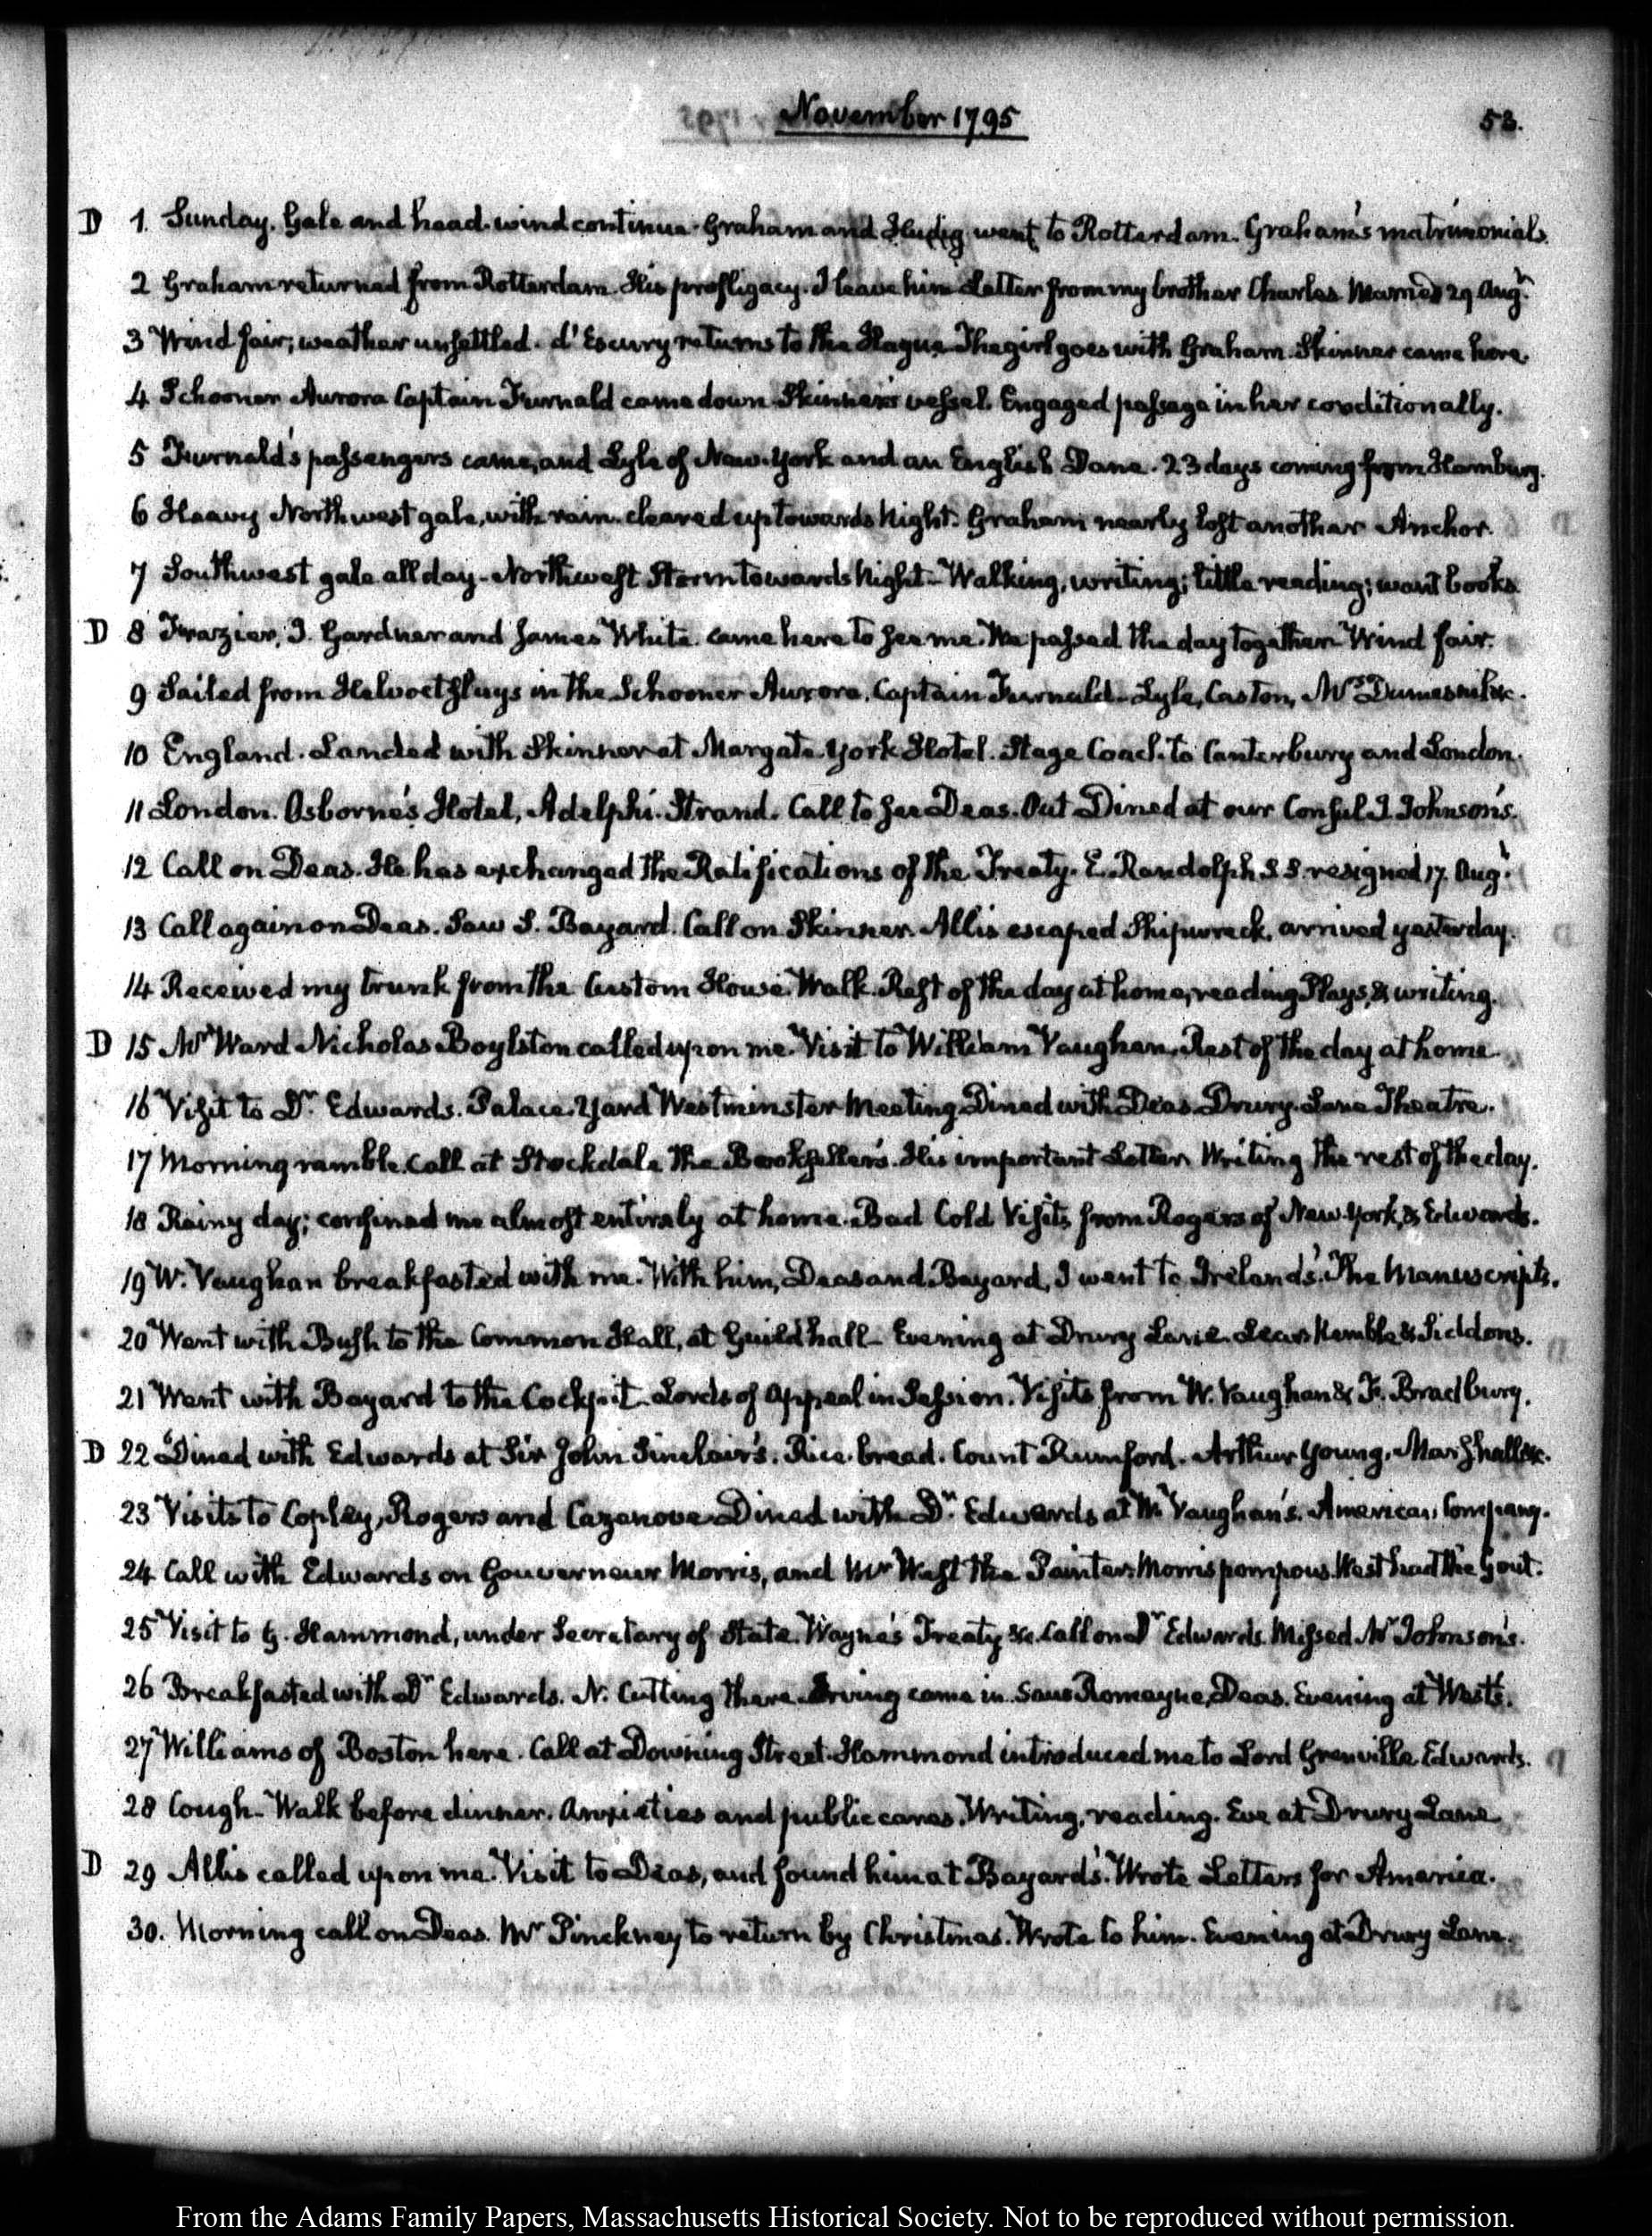 November 1795
53.
D 1. Sunday. Gale and head-wind continue. Graham and Hudig went to Rotterdam. Graham's matrimonials.
2 Graham returned from Rotterdam. His profligacy. I leave him. Letter from my brother Charles. Married 29 Augt.
3 Wind fair; weather unsettled. d'Escury returns to the Hague. The girl goes with Graham. Skinner came here.
4 Schooner Aurora Captain Furnald came down. Skinner's vessel. Engaged passage in her conditionally.
5 Furnald's passengers came, and Lyle of New-York and an English Dane. 23 days coming from Hamburg.
6 Heavy Northwest gale, with rain. cleared up towards Night. Graham nearly lost another Anchor.
7 Southwest gale all day. Northwest Storm towards Night. Walking, writing; little reading; want books.
D 8 Frazier, J. Gardner and James White. came here to see me. We passed the day together. Wind fair.
9 Sailed from Helvoetsluys in the Schooner Aurora. Captain Furnald. Lyle, Caston, Mrs. Dumesnil &c.
10 England. Landed with Skinner at Margate. York Hotel. Stage Coach to Canterbury and London.
11 London. Osborne's Hotel, Adelphi. Strand. Call to see Deas. Out. Dined at our Consul J. Johnson's.
12 Call on Deas. He has exchanged the Ratifications of the Treaty. E. Randolph. S.S. resigned 17. Augt.
13 Call again on Deas. Saw S. Bayard. Call on Skinner. Allis escaped Shipwreck. arrived yesterday.
14 Received my trunk from the Custom House. Walk. Rest of the day at home, reading Plays, & writing.
D 15 Mr Ward Nicholas Boylston called upon me. Visit to William Vaughan. Rest of the day at home.
16 Visit to Dr. Edwards. Palace-Yard Westminster Meeting. Dined with Deas. Drury-Lane Theatre.
17 Morning ramble. Call at Stockdale the Bookseller's. His important Letter. Writing the rest of the day.
18 Rainy day; confined me almost entirely at home. Bad Cold. Visits from Rogers of New-York, & Edwards.
19 W. Vaughan breakfasted with me. With him, Deas and Bayard, I went to Ireland's. The Manuscripts.
20 Went with Bush to the Common Hall, at Guildhall. Evening at Drury Lane. Lear. Kemble & Siddons.
21 Went with Bayard to the Cockpit. Lords of Appeal in Session. Visits from W. Vaughan & F. Bradbury.
D 22 Dined with Edwards at Sir John Sinclair's. Rice-bread. Count Rumford. Arthur Young. Marshall &c.
23 Visits to Copley, Rogers and Cazenove. Dined with Dr. Edwards at Mr Vaughan's. American Company.
24 Call with Edwards on Gouverneur Morris, and Mr West the Painter. Morris pompous. West had the Gout.
25 Visit to G. Hammond, under Secretary of State. Wayne's Treaty &c. Call on Dr Edwards. Missed Mr Johnson's.
26 Breakfasted with Dr Edwards. N. Cutting there. Irving came in. Saw Romayne, Deas. Evening at West's.
27 Williams of Boston here. Call at Downing Street. Hammond introduced me to Lord Grenville. Edwards.
28 Cough. Walk before dinner. Anxieties and public cares. Writing, reading. Eve at Drury Lane.
D 29 Allis called upon me. Visit to Deas, and found him at Bayard's. Wrote Letters for America.
30. Morning call on Deas. Mr Pinckney to return by Christmas. Wrote to him. Evening at Drury Lane.
From the Adams Family Papers, Massachusetts Historical Society. Not to be reproduced without permission.